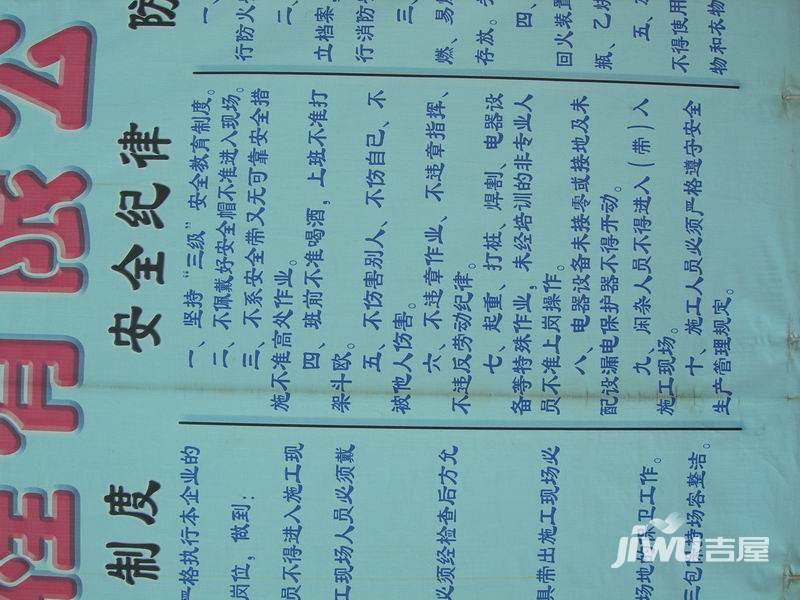 有限公
制度
严格执行本企业的
岗位,做到:
员不得进入施工现
工现场人员必须戴
必须经检查后方允
具带出施工现场必
场地的保卫工作。
三包保持场容整洁。
安全纪律
一、坚持“三级”安全教育制度。
二、不佩戴好安全帽不准进入现场。
三、不系安全带又无可靠安全措
施不准高处作业。
四、班前不准喝酒,上班不准打
架斗欧。
五、不伤害别人、不伤自已、不
被他人伤害。
六、不违章作业、不违章指挥、
不违反劳动纪律。
七、起重、打桩、焊割、电器设
备等特殊作业,未经培训的非专业人
员不准上岗操作。
八、电器设备未接零或接地及未
配设漏电保护器不得开动。
九、闲杂人员不得进入(带)入
施工现场。
十、施工人员必须严格遵守安全
生产管理规定。
防
一、
行防火
二、
立档案,
行消防
三、
燃、易
存放。
四、
回火装置
瓶、乙炔
五、
不得使用
物和衣物
JIWU吉屋